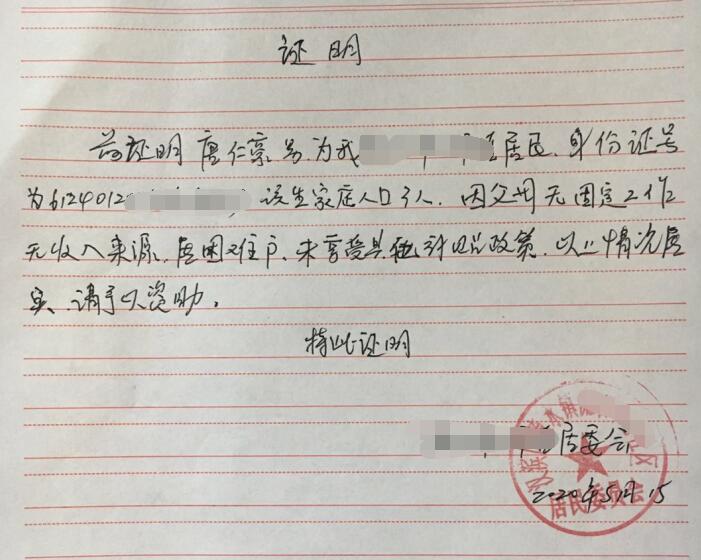 证明
兹证明唐仁豪男.为我居民.身份证号
为6124012,该生家庭人口3人.因父母无固定工作
无收入来源.属困难住户.未享受其他补贴政策.以上情况属
实.请予以资助。
特此证明
居委会
2020年5月15
居民委员会